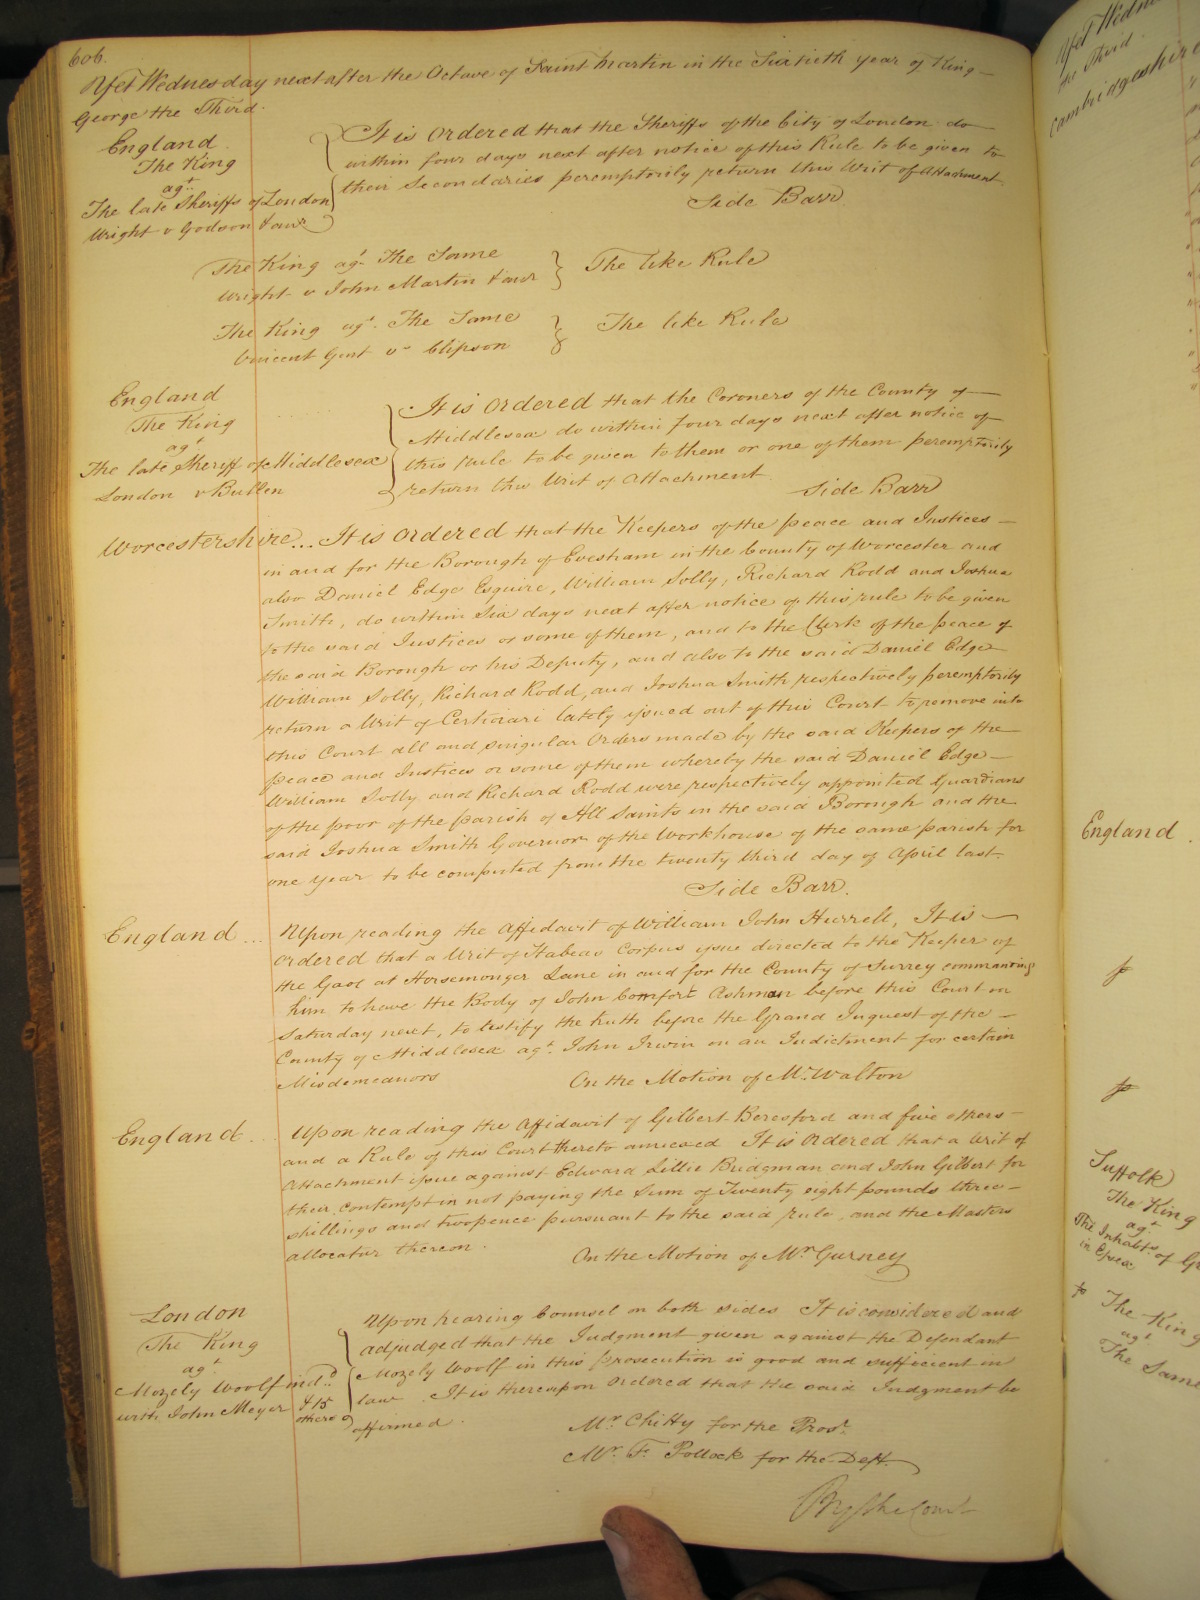 606.
Yet Wednesday next after the Octave of Saint Martin in the Sixtieth year of King
George the Third.
England
The King
agt.
The late Sheriffs of London
Wright v Godson & anr
It is ordered that the Sheriffs of the City of London do
within four days next after notice of this Rule to be given to
their Secondaries peremptorily return this Writ of Attachment
Side Barr
The King agt The Same
Wright v John Martin & anr
The like Rule
The King agt. The Same
Vincent Gent v Clipson
The like Rule
England
The King
agt
The late Sheriff of Middlesex
London v Bullen
It is ordered that the Coroners of the County of
Middlesex do within four days next after notice of
this Rule to be given to them or one of them peremptorily
return this Writ of Attachment
Side Barr
Worcestershire... It is ordered that the Keepers of the peace and Justices
in and for the Borough of Evesham in the County of Worcester and
also Daniel Edge Esquire, William Solly, Richard Rodd and Joshua
Smith, do within Six days next after notice of this rule to be given
to the said Justices or some of them, and to the Clerk of the peace of
the said Borough or his Deputy, and also to the said Daniel Edge
William Solly, Richard Rodd, and Joshua Smith respectively peremptorily
return a Writ of Certiorari lately issued out of this Court to remove into
this Court all and singular Orders made by the said Keepers of the
peace and Justices or some of them whereby the said Daniel Edge
William Solly and Richard Rodd were respectively appointed Guardians
of the poor of the parish of All Saints in the said Borough and the
said Joshua Smith Governor of the Workhouse of the same parish for
one year to be computed from the twenty third day of April last.
Side Barr.
England... Upon reading the Affidavit of William John Hurrell, It is
ordered that a Writ of Habeas Corpus issue directed to the Keeper of
the Gaol at Horsemonger Lane in and for the County of Surrey commanding
him to have the Body of John Comfort Ashman before this Court on
Saturday next, to testify the truth before the Grand Inquest of the
County of Middlesex agt. John Irwin on an Indictment for certain
Misdemeanors
On the Motion of Mr. Walton
England... Upon reading the Affidavit of Gilbert Beresford and five others
and a Rule of this Court thereto annexed It is ordered that a Writ of
Attachment issue against Edward Lillie Bridgman and John Gilbert for
their contempt in not paying the Sum of Twenty eight pounds three
shillings and twopence pursuant to the said rule, and the Masters
allocatur thereon.
On the Motion of Mr. Gurney
London
The King
agt
Mozely Woolf indd.
with John Meyer & 15
others
Upon hearing Counsel on both sides It is considered and
adjudged that the Judgment given against the Defendant
Mozely Woolf in this prosecution is good and sufficient in
law. It is thereupon ordered that the said Judgment be
affirmed.
Mr. Chitty for the Prosr.
Mr. F. Pollock for the Deft.
By the Court
Yet Wedn
the Third
Cambridgeshire
England
Suffolk
The King
agt
The Inhabts. of
in Essex
The King
agt
The Same